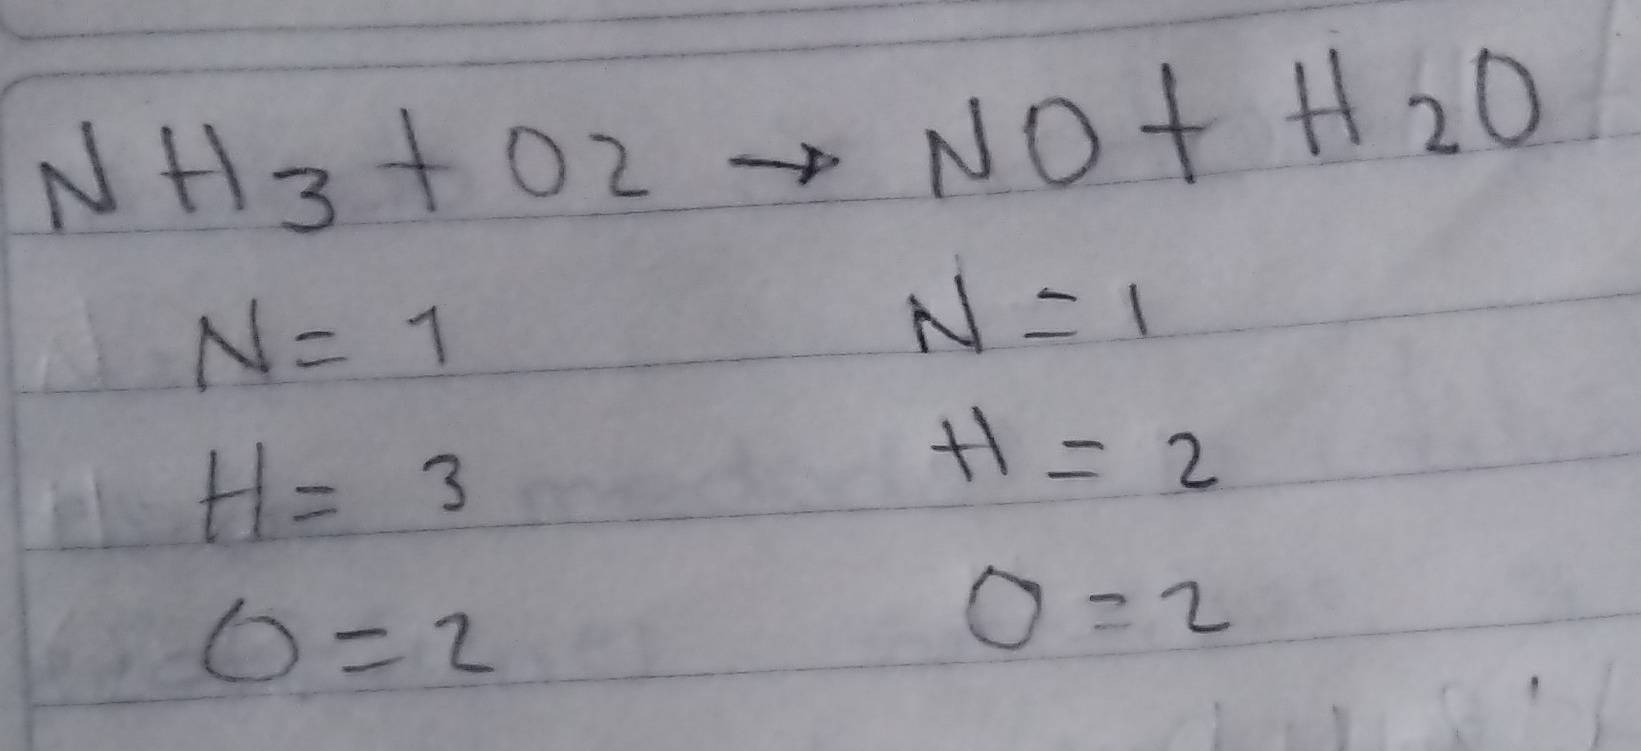 NH3 + O2 → NO + H2O
N = 1 N = 1
H = 3 H = 2
O = 2 O = 2